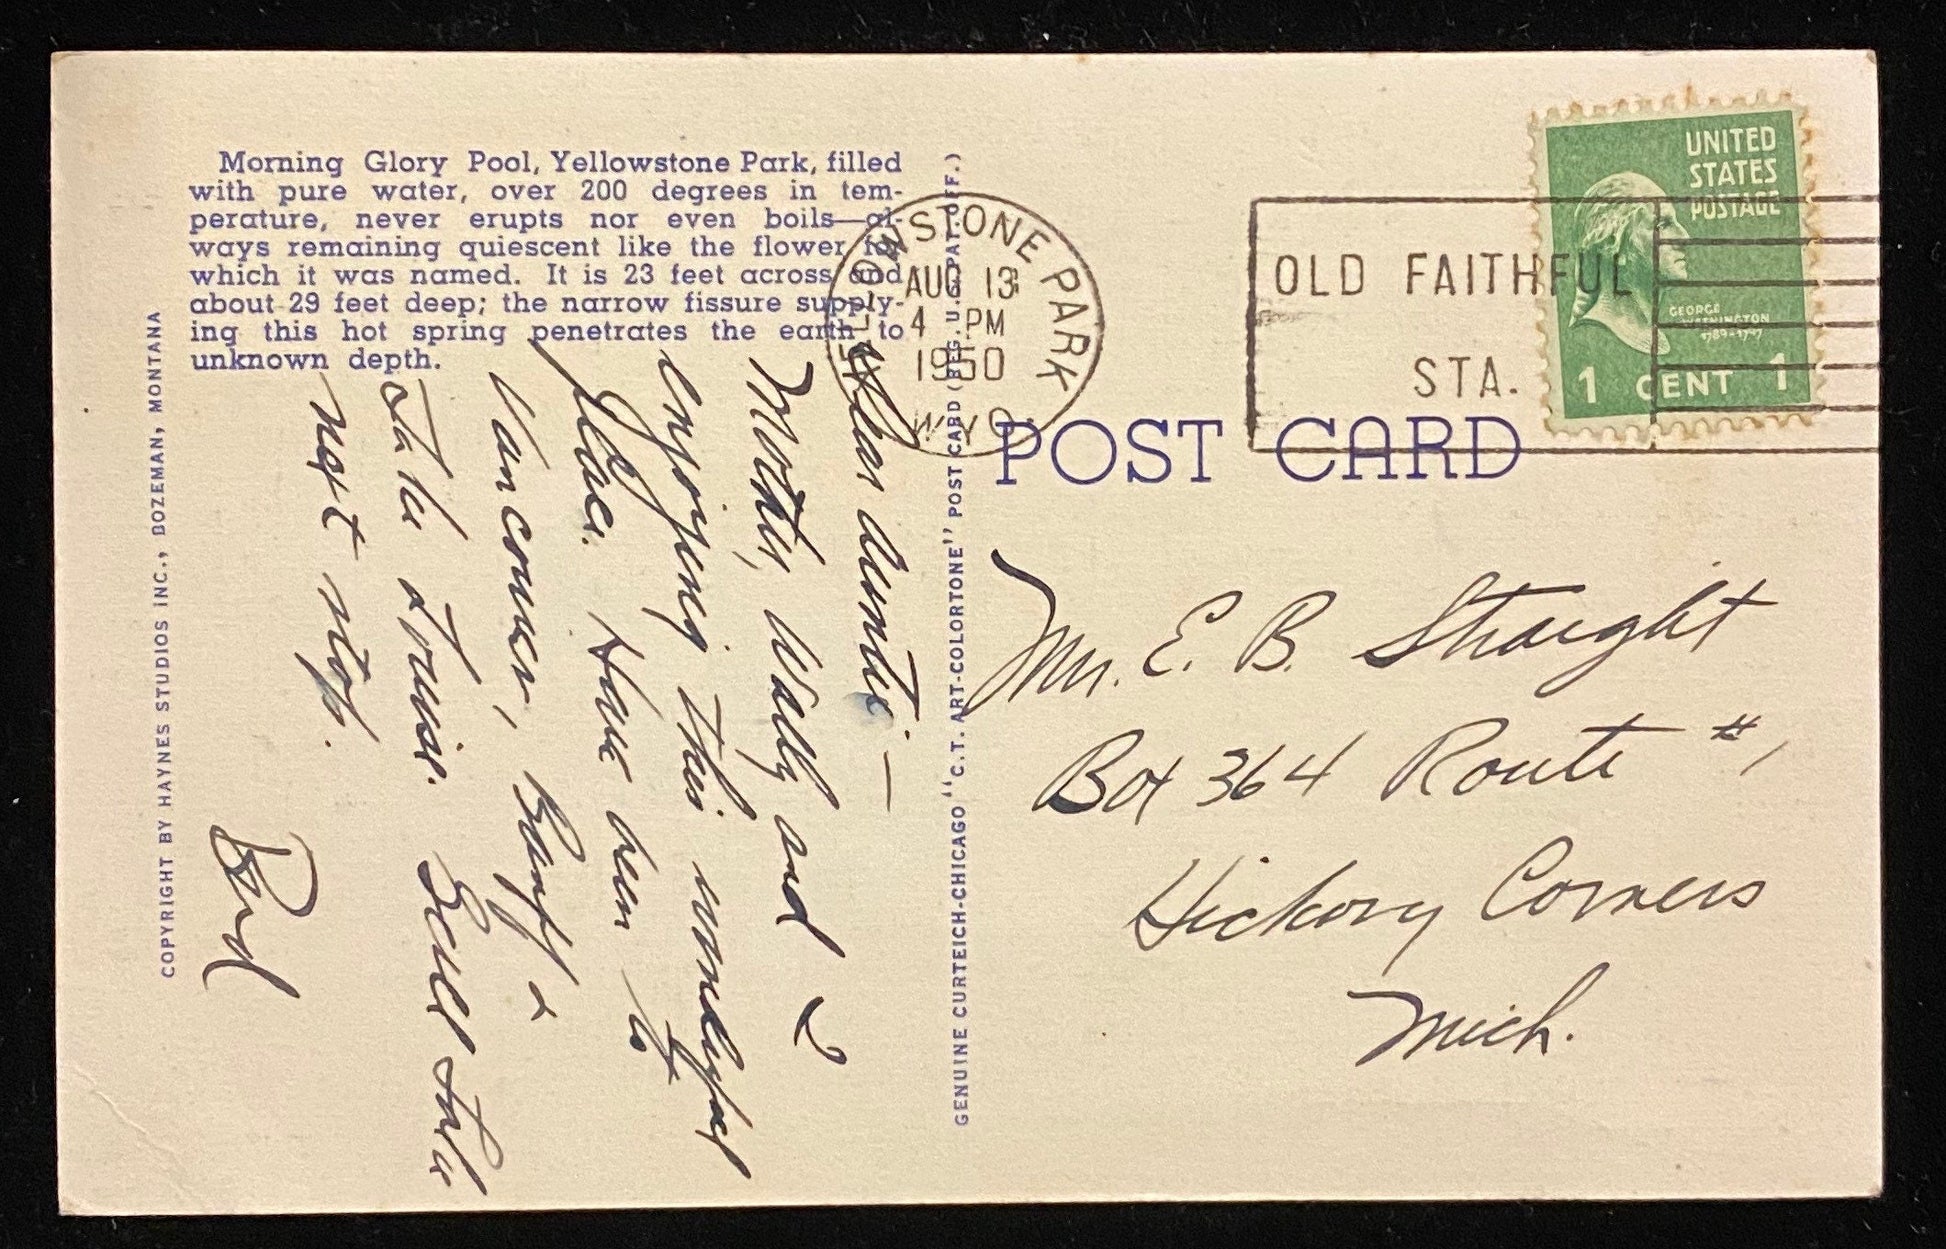 Morning Glory Pool, Yellowstone Park, filled
with pure water, over 200 degrees in tem-
perature, never erupts nor even boils—al-
ways remaining quiescent like the flower for
which it was named. It is 23 feet across and
about 29 feet deep; the narrow fissure supply-
ing this hot spring penetrates the earth to
unknown depth.
COPYRIGHT BY HAYNES STUDIOS INC., BOZEMAN, MONTANA
Dear Auntie:—
Mother, Wally and I
enjoying this
place. Have been to
Vancouver, Banff &
Lake Louise. Salt Lake
next stop.
Bud
GENUINE CURTEICH-CHICAGO "C.T. ART-COLORTONE" POST CARD (REG. U.S. PAT. OFF.)
YELLOWSTONE PARK
AUG 13
4 PM
1950
WYO.
OLD FAITHFUL
STA.
UNITED
STATES
POSTAGE
GEORGE
WASHINGTON
1789-1797
1 CENT 1
POST CARD
Mr. E. B. Straight
Box 364 Route #1
Hickory Corners
Mich.